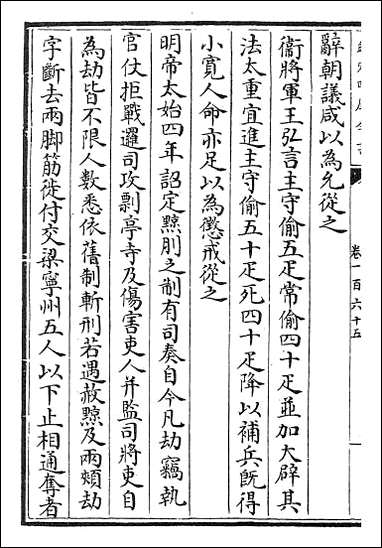 辭朝議咸以為允從之
衞將軍王弘言主守偷五疋常偷四十疋並加大辟其
法太重宜進主守偷五十疋死四十疋降以補兵既得
小寛人命亦足以為懲戒從之
明帝太始四年詔定黥刖之制有司奏自今凡劫竊執
官仗拒戰邏司攻剽亭寺及傷害吏人并監司將吏自
為劫皆不限人數悉依舊制斬刑若遇赦黥及兩頰劫
字斷去兩脚筋徙付交梁寧州五人以下止相逼奪者
卷一百六十五